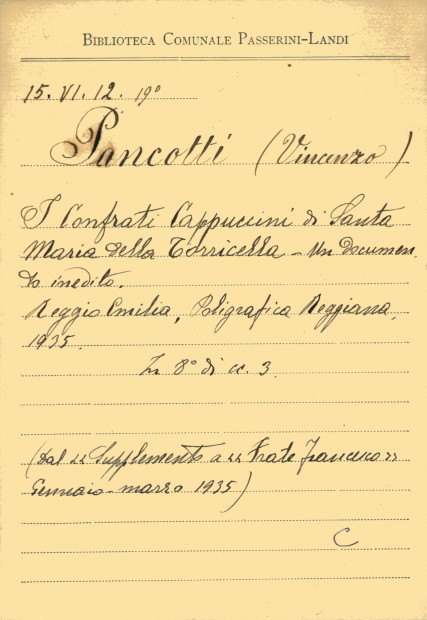 BIBLIOTECA COMUNALE PASSERINI-LANDI
15. VI. 12. 19º
Pancotti (Vincenzo)
I Confrati Cappuccini di Santa
Maria della Torricella - Un documen
to inedito.
Reggio Emilia, Poligrafica Reggiana,
1935.
In 8º di cc. 3.
(Dal "Supplemento a "Frate Francesco"
Gennaio-marzo 1935)
C